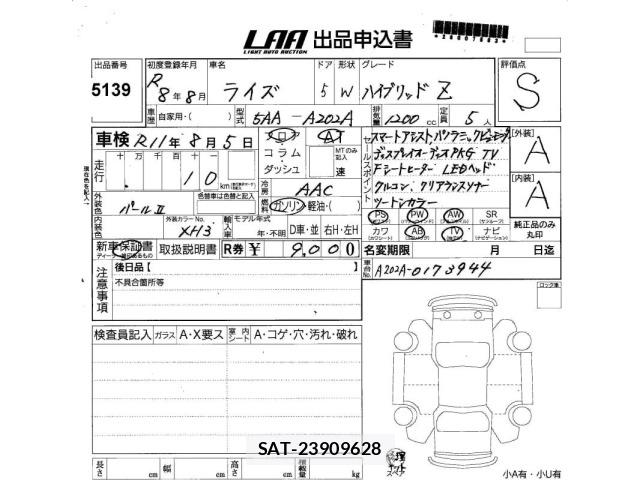 LAA 出品申込書
LIGHT AUTO AUCTION
出品番号 初度登録年月 車名 ドア 形状 グレード 評価点
5139 R8年8月 ライズ 5 W ハイブリッド Z S
車歴 自家用・( ) 型式 5AA-A202A 排気量 1200cc 定員 5人
車検 R11年8月5日 フロア AT
セールスポイント スマートアシスト,パノラミックビューモニタ
[外装] A
走行 十万 千百十一
10km コラム ダッシュ MTのみ記入 速
ディスプレイオーディオPKG TV
Fシートヒーター LEDヘッド
冷房 AAC
クルコン クリアランスソナー
[内装] A
外装色 パールⅡ 色替車は色替と記入
燃料 ガソリン・軽油・( )
ツートンカラー
PS PW AW SR
内装色 外装カラーNo. XH3 輸入車 モデル年式 年・不明 D車・並 右H・左H
カワ AB TV ナビ
純正品のみ丸印
新車保証書 取扱説明書 R券 ¥ 9,000
名変期限 月 日迄
注意事項 後日品【 】
車台No. A202A-0173944
不具合箇所等
ロック車
検査員記入 ガラス A・X要ス 室内シート A・コゲ・穴・汚れ・破れ
SAT-23909628
長さ cm 幅 cm 高さ cm 積載量 kg
スペア
小A有・小U有